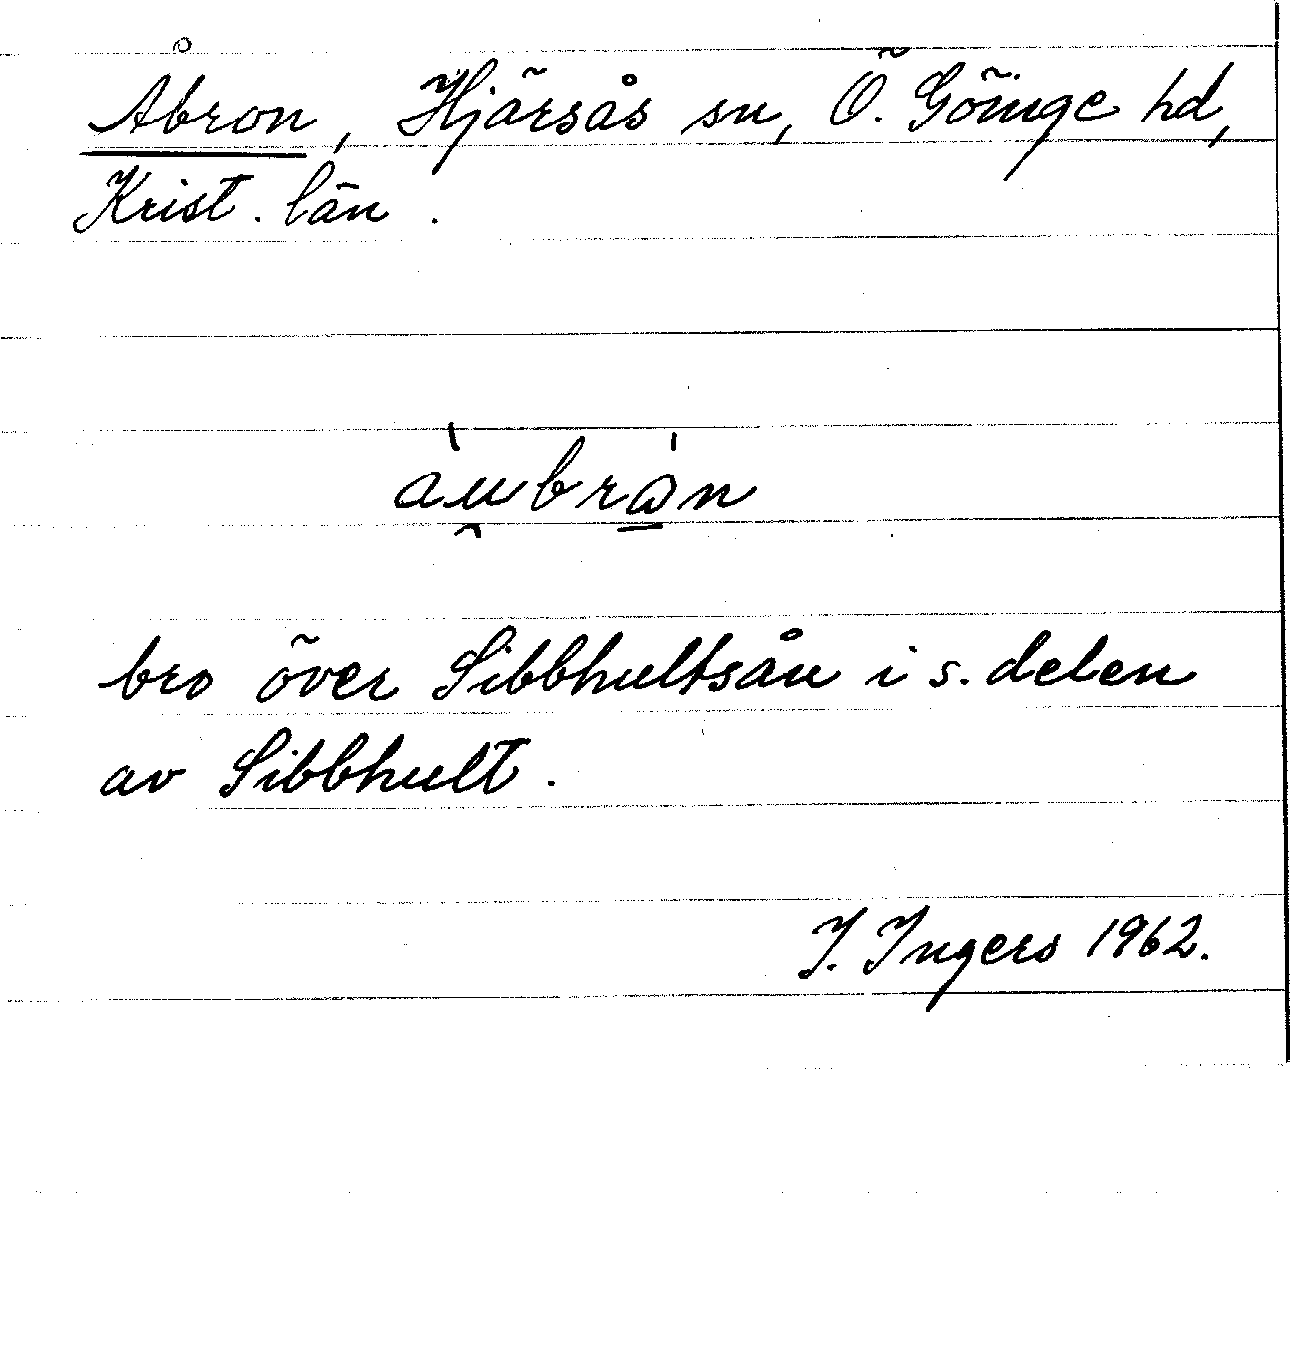 Åbron, Hjärsås sn, Ö. Göinge hd,
Krist. län.
àu̯brά̲n
bro över Sibbhultsån i s. delen
av Sibbhult.
I. Ingers 1962.